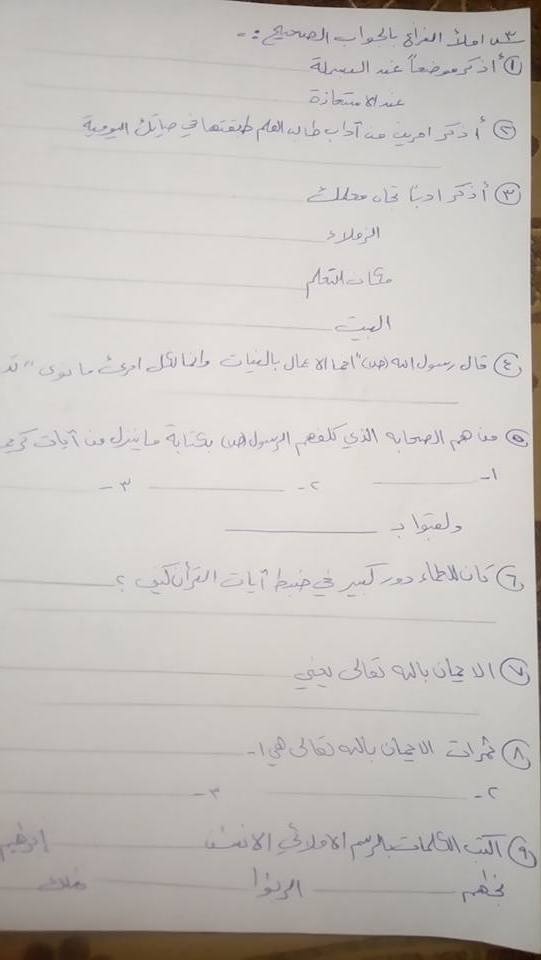 س٣ املأ الفراغ بالجواب الصحيح :-
١ أذكر موضعاً عند البسملة
عند الاستعاذة
٢ أذكر امرين من آداب طالب العلم طبقتها في حياتك اليومية
٣ أذكر ادبًا تجاه معلمك
الزملاء
مكان التعلم
البيت
٤ قال رسول الله (ص) "انما الاعمال بالنيات وانما لكل امرئ ما نوى"
٥ من هم الصحابه الذي كلفهم الرسول (ص) بكتابة ما ينزل من آيات
١- ٢- ٣-
ولقبوا بـ
٦ كان للعلماء دور كبير في ضبط آيات القرآن كيف ؟
٧ الايمان بالله تعالى يعني
٨ ثمرات الايمان بالله تعالى هي ١-
٢- ٣-
٩ اكتب الكلمات بالرسم الاملائي
الربوٰا